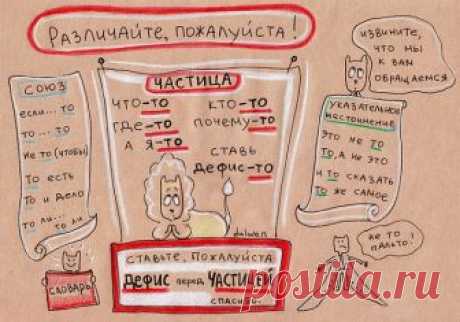 Различайте, пожалуйста!
СОЮЗ
если... то
то ... то
не то (чтобы)
то есть
то и дело
то ли... то ли
СЛОВАРЬ
ЧАСТИЦА
что-то
кто-то
где-то
почему-то
а я-то
ставь
дефис-то
dalwen
Ставьте, пожалуйста
ДЕФИС перед ЧАСТИЦЕЙ
спасибо.
извините,
что мы
к вам
обращаемся
УКАЗАТЕЛЬНОЕ
МЕСТОИМЕНИЕ
Это не то
То, а не это
и то сказать
то же самое
не то
пальто!
POSTILA.RU